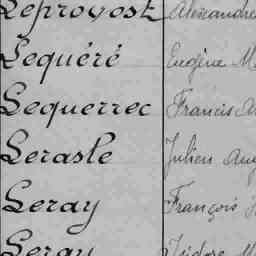 Leprovost Alexandre
Lequéré Eugène M
Lequerrec Francis
Lerasle Julien Aug
Leray François
Leray Isidore M